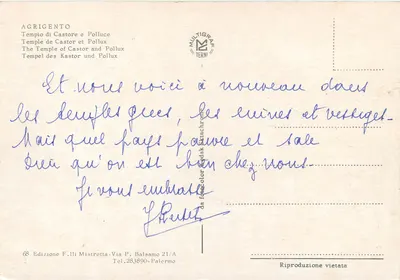 AGRIGENTO
Tempio di Castore e Polluce
Temple de Castor et Pollux
The Temple of Castor and Pollux
Tempel des Kastor und Pollux
MULTIGRAF
TERNI
Et nous voici à nouveau dans
les temples grecs, les ruines et vestiges-
Mais quel pays pauvre et sale
Dieu qu'on est bien chez nous-
Je vous embrasse
68 Edizione F.lli Mistretta - Via P. Balsamo 21/A
Tel. 263890 - Palermo
Riproduzione vietata